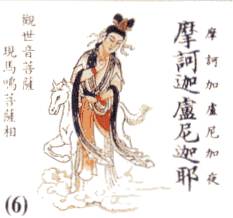 摩訶加盧尼加夜
摩訶迦盧尼迦耶
觀世音菩薩
現馬鳴菩薩相
(6)